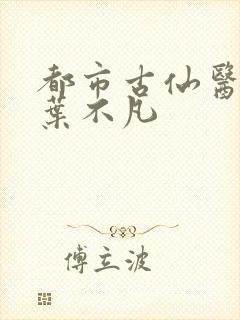 都市古仙醫
葉不凡
傅立波